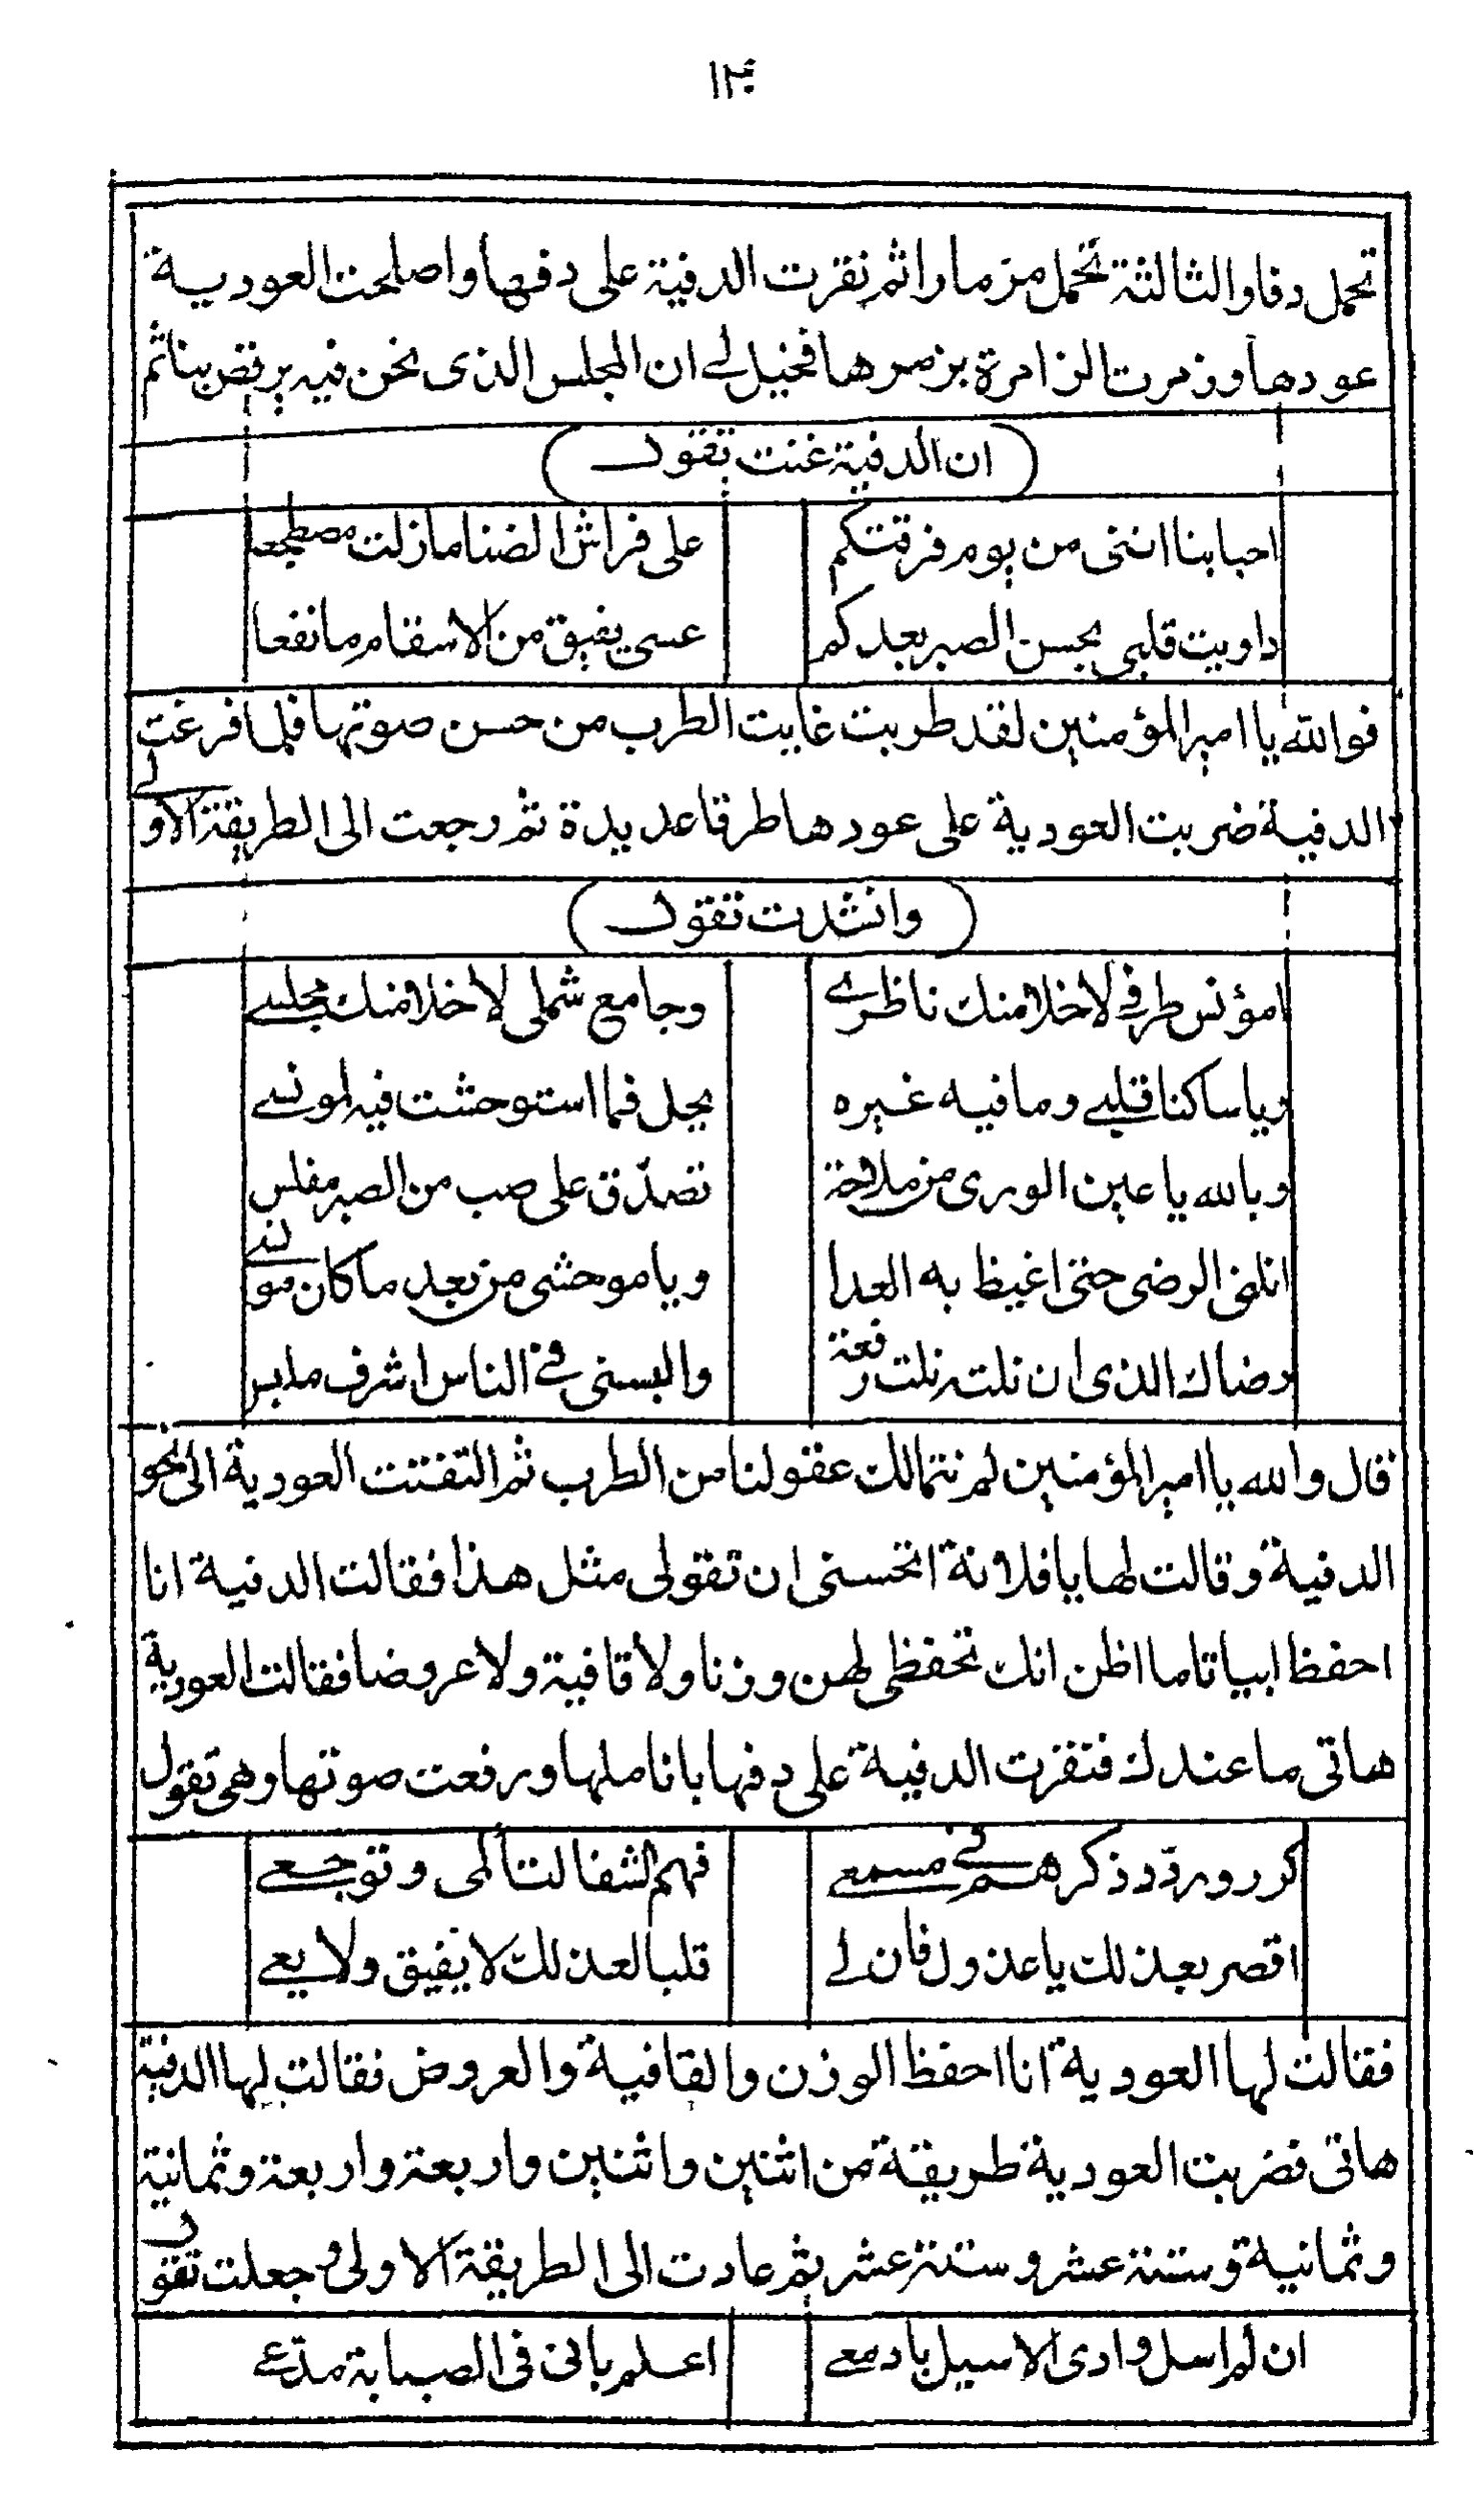 ١٣٠
تحمل دفا والثالثة تحمل مزمارا ثم نقرت الدفية على دفها واصلحت العودية
عودها وزمرت الزامرة بزمرها فخيل لى ان المجلس الذى نحن فيه يرقص بنا ثم
(ان الدفية غنت تقول)
احبابنا اننى من يوم فرقتكم على فراش الضنا مازلت مضطجعا
داويت قلبى بحسن الصبر بعدكم عسى يفيق من الاسقام ما نفعا
فوالله يا امير المؤمنين لقد طربت غايت الطرب من حسن صوتها فلما فرغت
الدفية ضربت العودية على عودها طرقا عديدة ثم رجعت الى الطريقة الاولى
(وانشدت تقول)
امؤنس طرفى لا خلا منك ناظرى وجامع شملى لا خلا منك مجلسى
وياساكنا قلبى ومافيه غيره بحل فما استوحشت فيه لمونسى
وبالله يا عين الورى من ملاحة تصدّق على صب من الصبر مفلس
انلنى الرضى حتى اغيظ به العدا ويا موحشى من بعد ما كان مونسى
رضاك الذى ان نلته نلت رفعة والبسنى فى الناس اشرف ملبس
قال والله يا امير المؤمنين لم نتمالك عقولنا من الطرب ثم التفتت العودية الى نحو
الدفية وقالت لها يا فلانة اتحسنى ان تقولى مثل هذا فقالت الدفية انا
احفظ ابياتا ما اظن انك تحفظى لهن وزنا ولا قافية ولا عروضا فقالت العودية
هاتى ما عندك فنقرت الدفية على دفها باناملها ورفعت صوتها وهى تقول
كرر وردّد ذكرهم فى مسمعى فهم الشفا لتألمى وتوجعى
اقصر بعذلك يا عذول فان لى قلبا لعذلك لا يفيق ولا يعى
فقالت لها العودية انا احفظ الوزن والقافية والعروض فقالت لها الدفية
هاتى فضربت العودية طريقة من اثنين واثنين واربعة واربعة وثمانية
وثمانية وستة عشر وستة عشر ثم عادت الى الطريقة الاولى وجعلت تقول
ان لم اسل وادى الاسيل بادمعى اعلم بانى فى الصبابة مدّعى